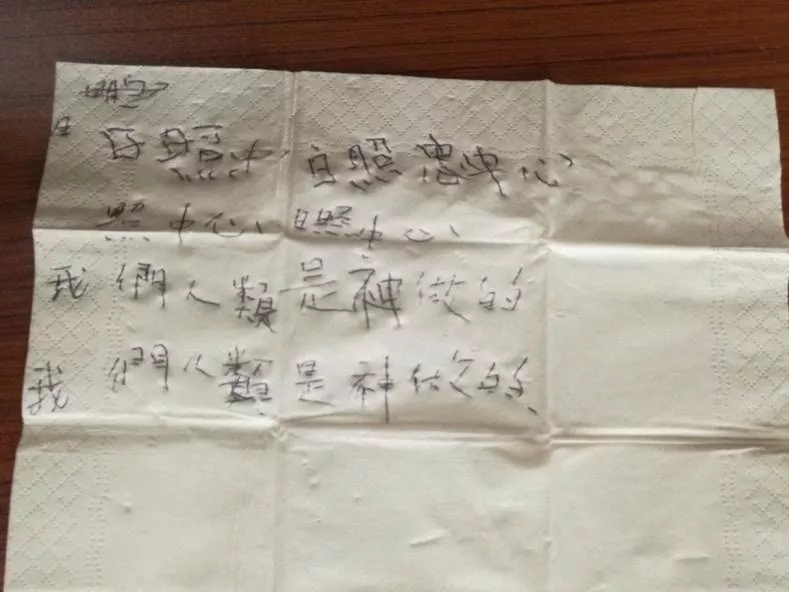 日
日照中 日照忠中心
照中心 日照中心
我們人類是神做的
我們人類是神做的